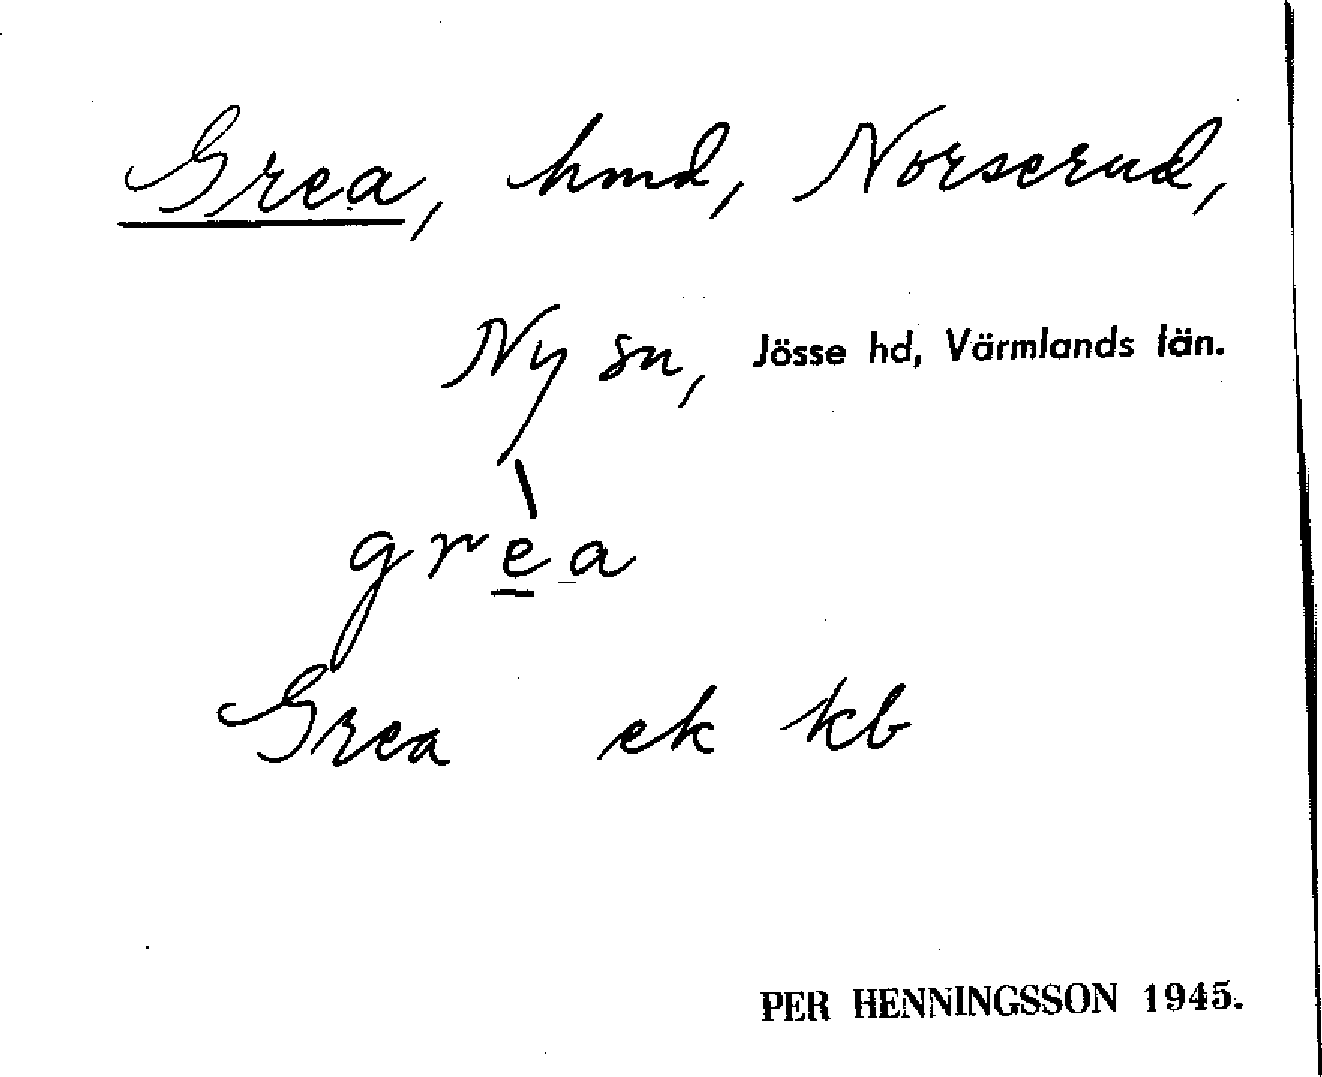 Grea, hmd, Norserud,
Ny sn, Jösse hd, Värmlands län.
grèa
Grea ek kb
PER HENNINGSSON 1945.